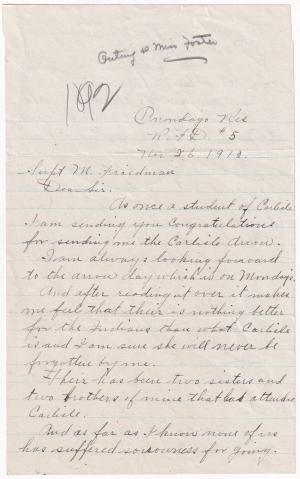 Outing & Miss Foster
1892
Onondago Res
R. F. D. #5
Nov 26, 1912.
Supt M. Friedman
Dear Sir.
As once a student of Carlisle
I am sending you Congratulations
for sending me the Carlisle Arrow.
I am always looking foward
to the arrow day which is on Monday's
And after reading it over it makes
me feel that their is nothing better
for the Indians than what Carlisle
is and I am sure she will never be
forgotten by me.
Their has been two sisters and
two brothers of mine that had attended
Carlisle.
And as far as I know none of us
has suffered sorrowness for going.